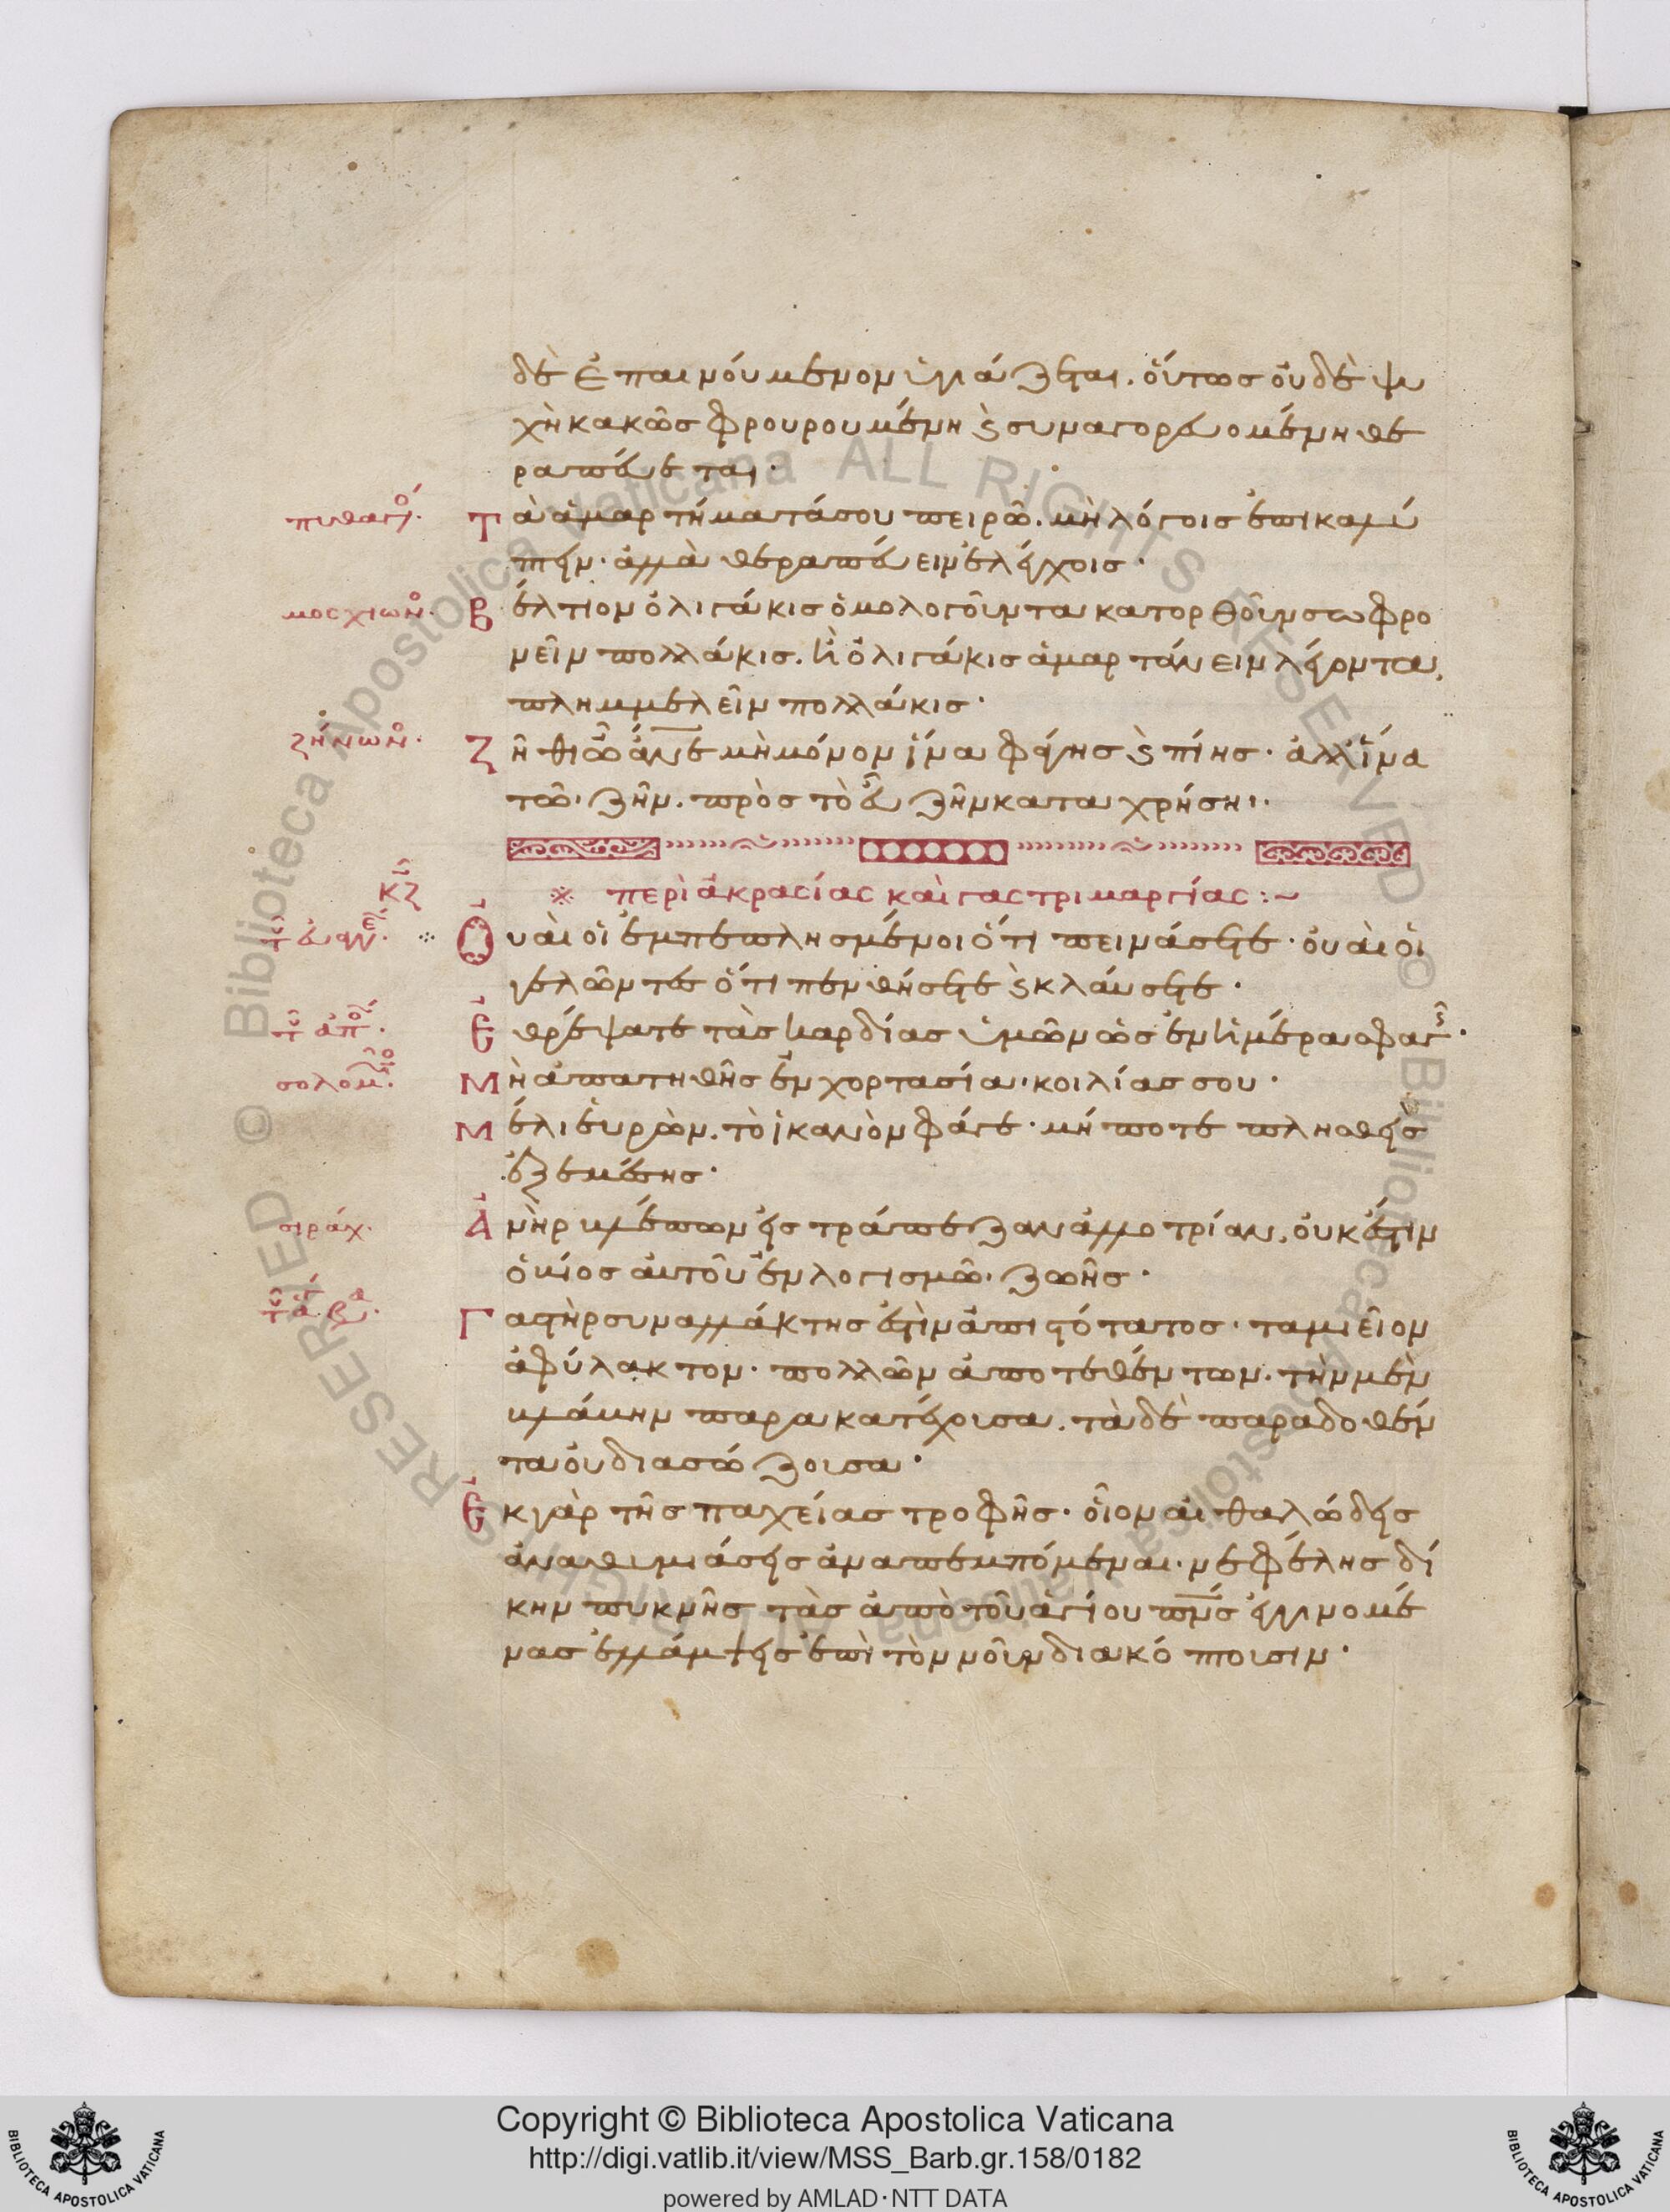 δὲ ἐπαινούμενον ὑγιάζεται. οὕτως οὐδὲ ψυ
χὴ κακῶς φρουρουμένη ϗ συναγορευομένη θε
ραπεύεται·
πυθαγό· Τὰ ἁμαρτήματά σου πειρῶ. μὴ λόγοις ἐπικαλύ
πτειν· ἀλλὰ θεραπεύειν ἐλέγχοις·
μοσχίων· Βέλτιον ὀλιγάκις ὁμολογοῦντα κατορθοῦν σωφρο
νεῖν πολλάκις. ἢ ὀλιγάκις ἁμαρτάνειν λέγοντα,
πλημμελεῖν πολλάκις·
ζήνων· Ζῆθι ὦ ἄνε μὴ μόνον ἵνα φάγης ϗ πίης· ἀλλ' ἵνα
τῶ ζῆν. πρὸς τὸ εὖ ζῆν καταχρήση·
ΚΖ
※ περὶ ἀκρασίας καὶ γαστριμαργίας :~
τοῦ εὐαγγελ· Οὐαὶ οἱ ἐμπεπλησμένοι ὅτι πεινάσετε· οὐαὶ οἱ
γελῶντες ὅτι πενθήσετε ϗ κλαύσετε·
τοῦ ἀπο· Ἐθρέψατε τὰς καρδίας ὑμῶν ὡς ἐν ἡμέρα σφαγῆς·
σολομ· Μὴ ἀπατηθῆς ἐν χορτασία κοιλίας σου·
Μέλι εὑρὼν. τὸ ἱκανὸν φάγε· μή ποτε πλησθεὶς
ἐξεμέσης·
σιράχ· Ἀνὴρ βλέπων εἰς τράπεζαν ἀλλοτρίαν, οὐκ ἔστιν
ὁ βίος αὐτοῦ ἐν λογισμῶ ζωῆς·
τοῦ ἁγ βα· Γαστὴρ συναλλάκτης ἐστὶν ἀπιστότατος· ταμιεῖον
ἀφύλακτον· πολλῶν ἀποτεθέντων. τὴν μὲν
βλάβην παρακατέχουσα. τὰ δὲ παραδοθέν
τα οὐ διασώζουσα·
Ἐκ γὰρ τῆς παχείας τροφῆς· οἷον αἰθαλώδεις
ἀναθυμιάσεις ἀναπεμπόμεναι· νεφέλης δί
κην πυκνῆς τὰς ἀπὸ τοῦ ἁγίου πνς γινομέ
νας ἐλλάμψεις ἐπὶ τὸν νοῦν διακόπτουσιν·
Copyright © Biblioteca Apostolica Vaticana
http://digi.vatlib.it/view/MSS_Barb.gr.158/0182
powered by AMLAD·NTT DATA
BIBLIOTECA APOSTOLICA VATICANA
BIBLIOTECA APOSTOLICA VATICANA
© Biblioteca Apostolica Vaticana ALL RIGHTS RESERVED
© Biblioteca Apostolica Vaticana ALL RIGHTS RESERVED